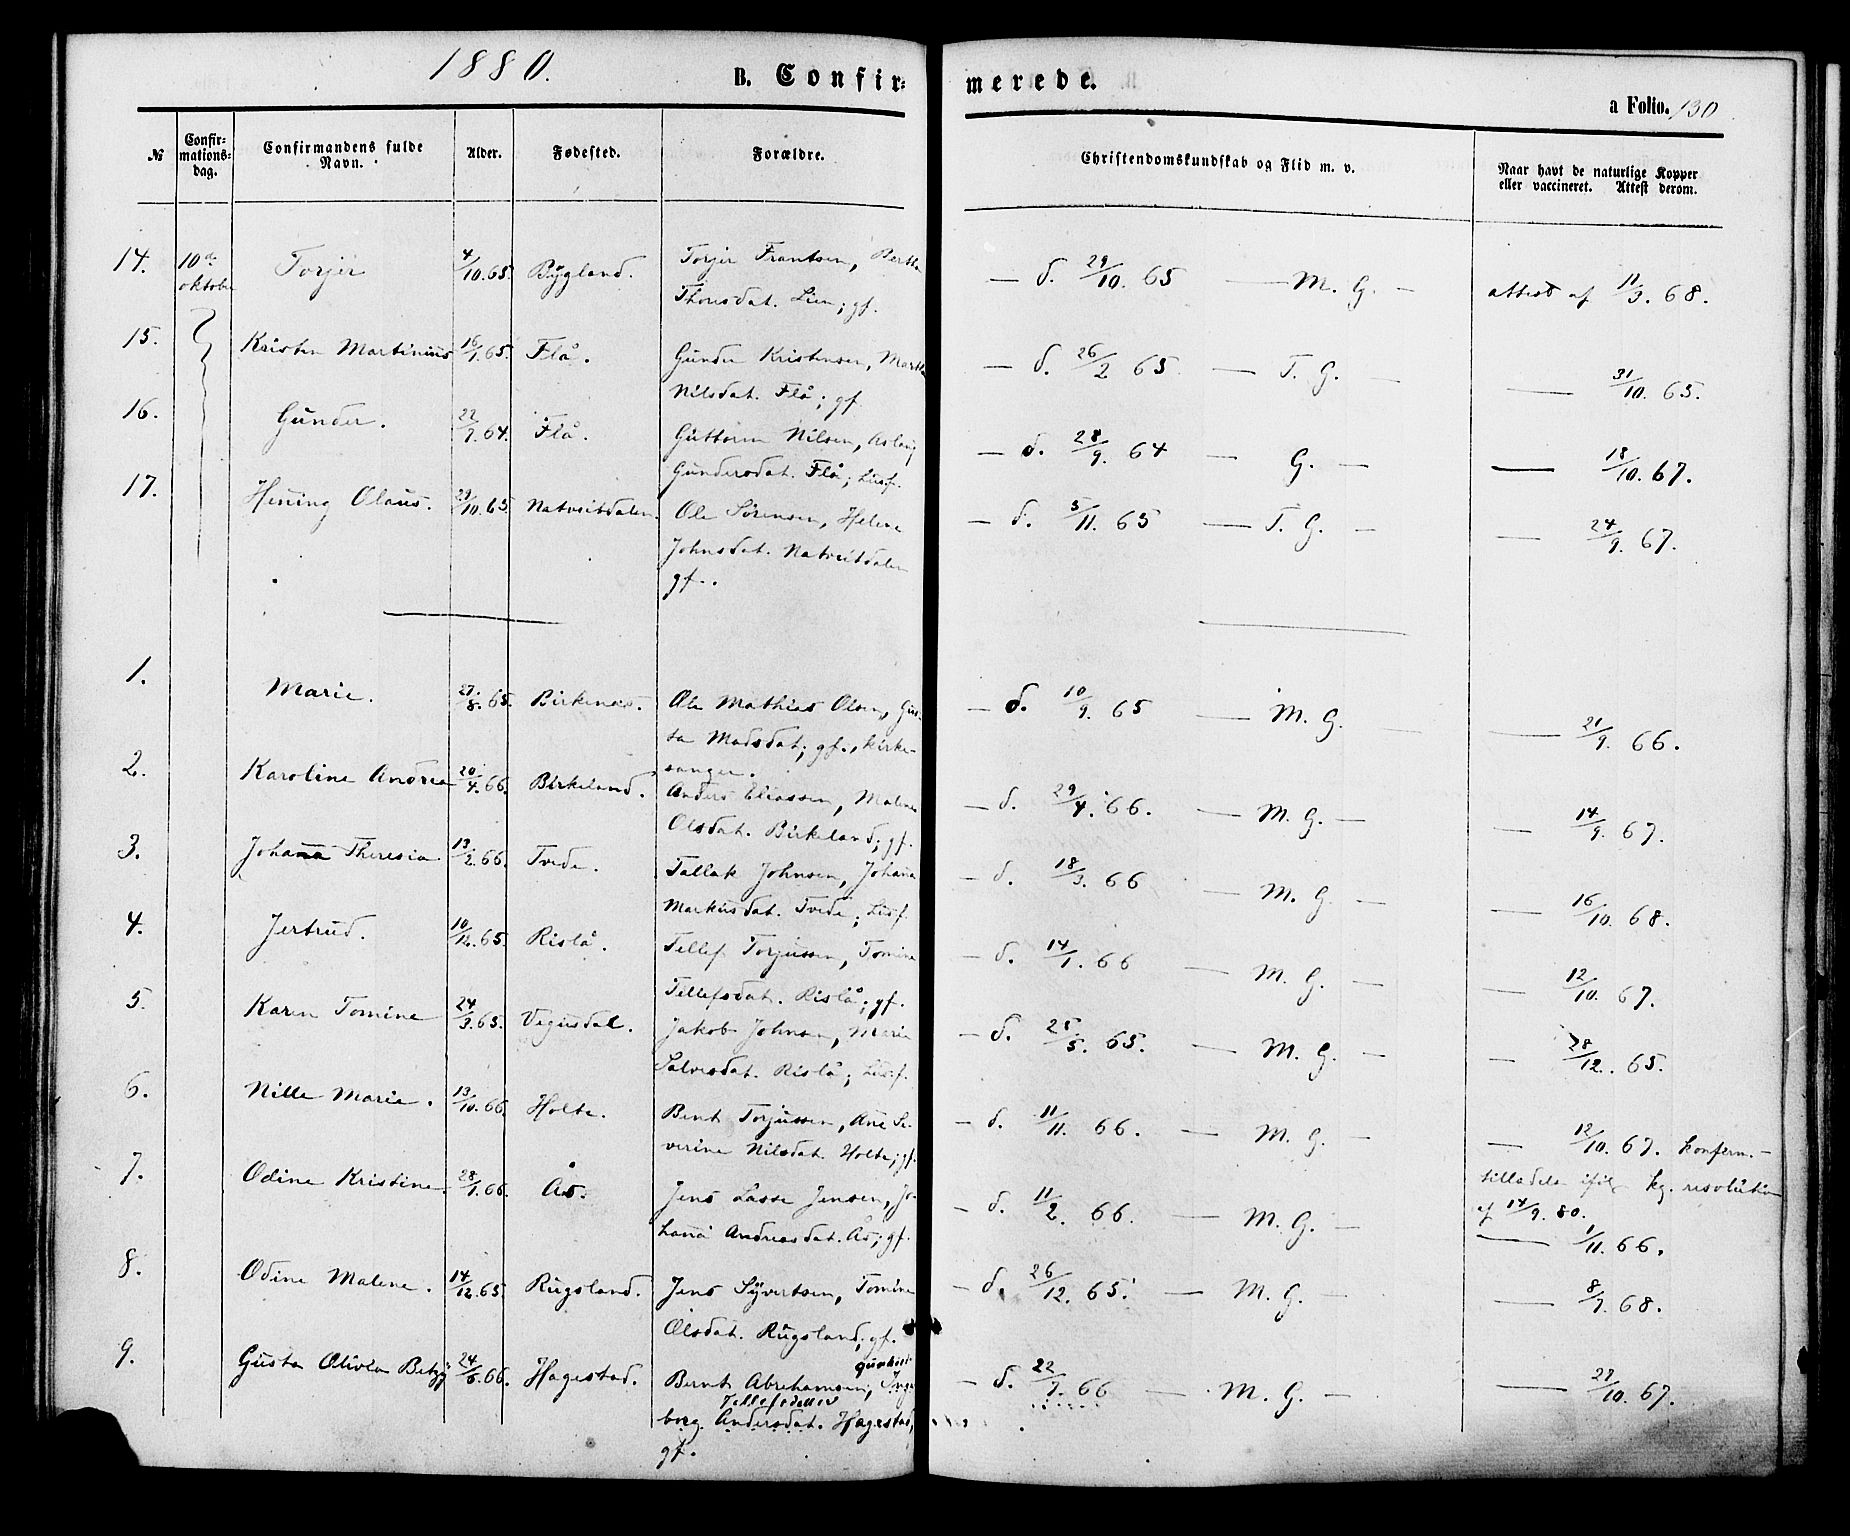 1880.
B. Confir=
merede.
a Folio. 130
№
Confir=
mations=
dag.
Confirmandens fulde
Navn.
Alder.
Fødested.
Forældre.
Christendomskundskab og Flid m. v.
Naar havt de naturlige Kopper
eller vaccineret. Attest derom.
14. 10de oktober Torjer 4/10.65. Bygland. Torjer Frantsen, Berthe
Thorsdat. Lien; gf.
— d. 29/10. 65 — M. G. — attest af 11/3. 68.
15. Kristen Martinius 16/1.65. Flå. Gunder Kristensen, Marthe
Nilsdat. Flå; gf.
— d. 26/2 65 — T. G. — — 31/10. 65.
16. Gunder. 22/7.64. Flå. Guttorm Nilsen, Aslaug
Gundersdat. Flå; Husf.
— d. 28/9. 64 — G. — — 18/10. 67.
17. Hening Olaus. 29/10.65. Natveitdalen. Ole Sørensen, Helene
Johnsdat. Natveitdalen
gf.
— d. 5/11. 65 — T. G. — — 24/9. 67.
1. Marie. 27/8.65. Birkenæs. Ole Mathias Olsen, Gus-
ta Madsdat; gf., kirke-
sanger.
— d. 10/9. 65 — M. G. — — 21/9. 66.
2. Karoline Andrea 20/4.66. Birkeland. Anders Eliassen, Malene
Olsdat. Birkeland; gf.
— d. 29/4. 66. — M. G. — — 14/9. 67.
3. Johanna Theresia 13/2.66. Tvede. Tallak Johnsen, Johanna
Markusdat. Tvede; Husf.
— d. 18/3. 66 — M. G. — — 16/10. 68.
4. Jertrud. 10/12.65. Rislå. Tellef Torjussen, Tomine
Tellefsdat. Rislå; gf.
— d. 14/1. 66 — M. G. — — 12/10. 67.
5. Karen Tomine 24/3.65. Vegusdal. Jakob Johnsen, Marie
Salvesdat. Rislå; Husf.
— d. 25/5. 65. — M. G. — — 28/12. 65.
6. Nille Marie. 13/10.66. Holte. Bent Torjussen, Ane Se-
verine Nilsdat. Holte; gf.
— d. 11/11. 66. — M. G. — — 12/10. 67. konferm.-
tilladelse ifølg kg. resolution
af 14/9. 80.
7. Odine Kristine. 28/1.66. Ås. Jens Lasse Jensen, Jo-
hanna Andreasdat. Ås; gf.
— d. 11/2. 66. — M. G. — — 1/11. 66.
8. Odine Malene. 14/12.65. Rugsland. Jens Syvertsen, Tomine
Olsdat. Rugsland; gf.
— d. 26/12. 65. — M. G. — — 8/7. 68.
9. Gusta Olivia Betzy 24/6.66. Hagestad. Bernt Abrahamsen, Inge-
Tellefsdatter
borg Andersdat. Hagestad,
gf.
— d. 22/7. 66 — M. G. — — 27/10. 67.